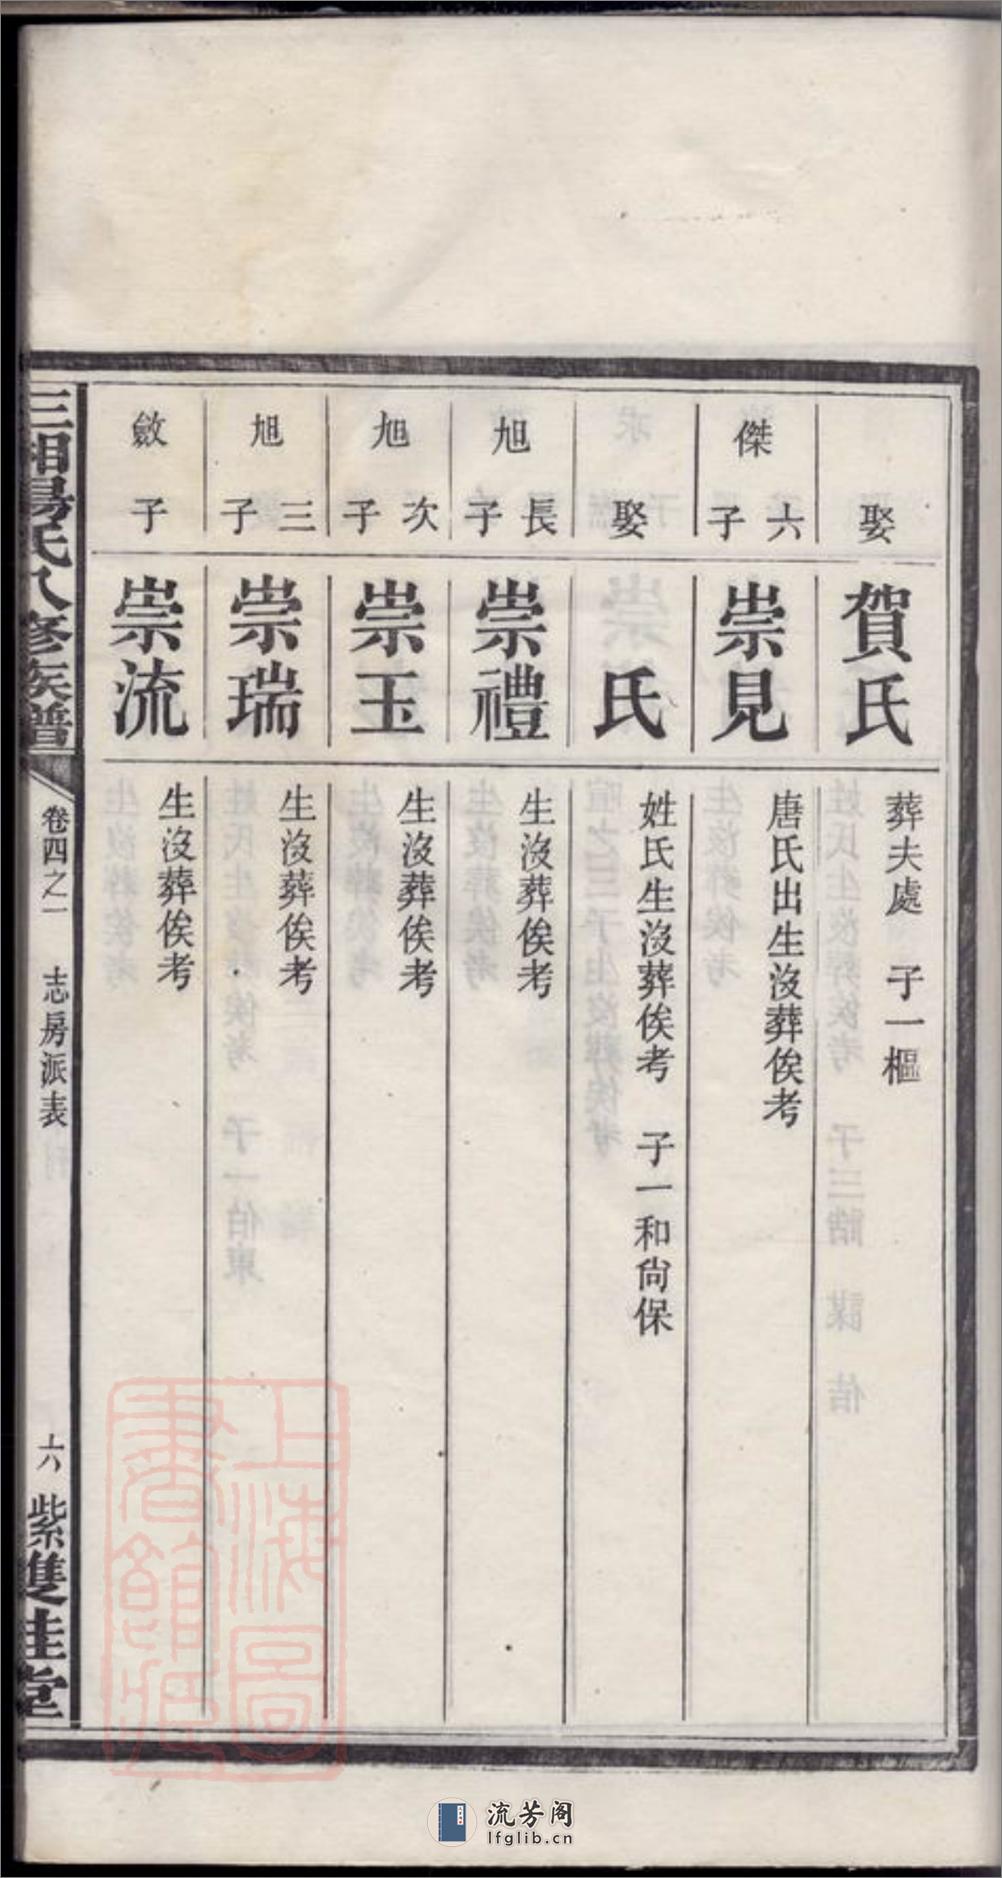 娶
賀氏
葬夫處 子一樞
傑六子
崇見
唐氏出生沒葬俟考
娶
氏
姓氏生沒葬俟考 子一和尙保
旭長子
崇禮
生沒葬俟考
旭次子
崇玉
生沒葬俟考
旭三子
崇瑞
生沒葬俟考
斂子
崇流
生沒葬俟考
三湘湯氏八修族譜
卷四之一 志房派表
十六 紫雙桂堂
上海圖書館藏
流芳阁
lfglib.cn